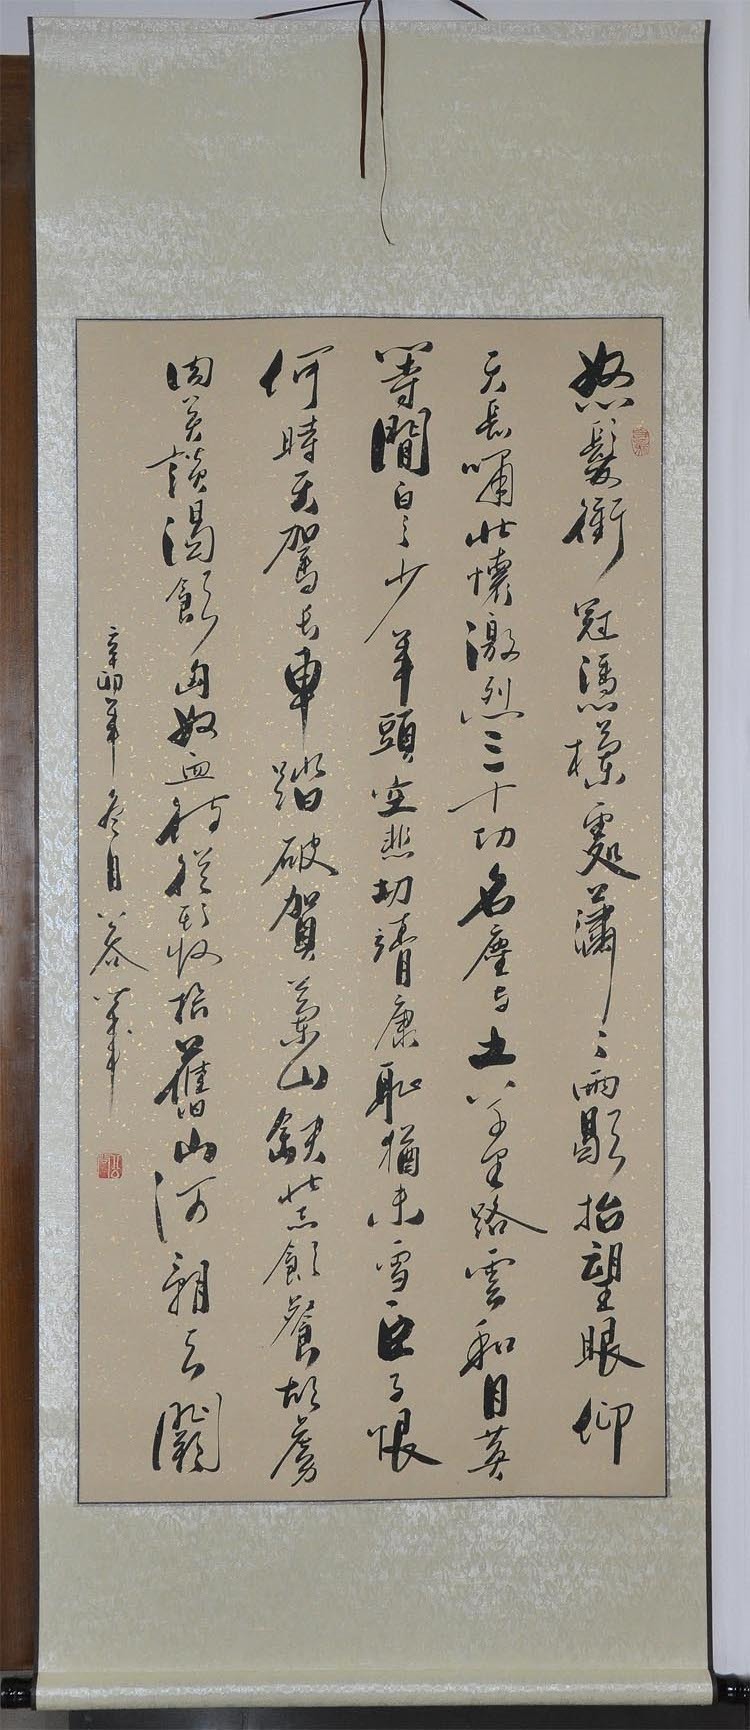 怒髮衝冠憑欄處瀟々雨歇抬望眼仰
天長嘯壯懷激烈三十功名塵与土八千里路雲和月莫
等閒白了少年頭空悲切靖康恥猶未雪臣子恨
何時灭駕長車踏破賀蘭山缺壯志飢餐胡虜
肉笑談渴飲匈奴血待從頭收拾舊山河朝天闕
辛卯年冬月